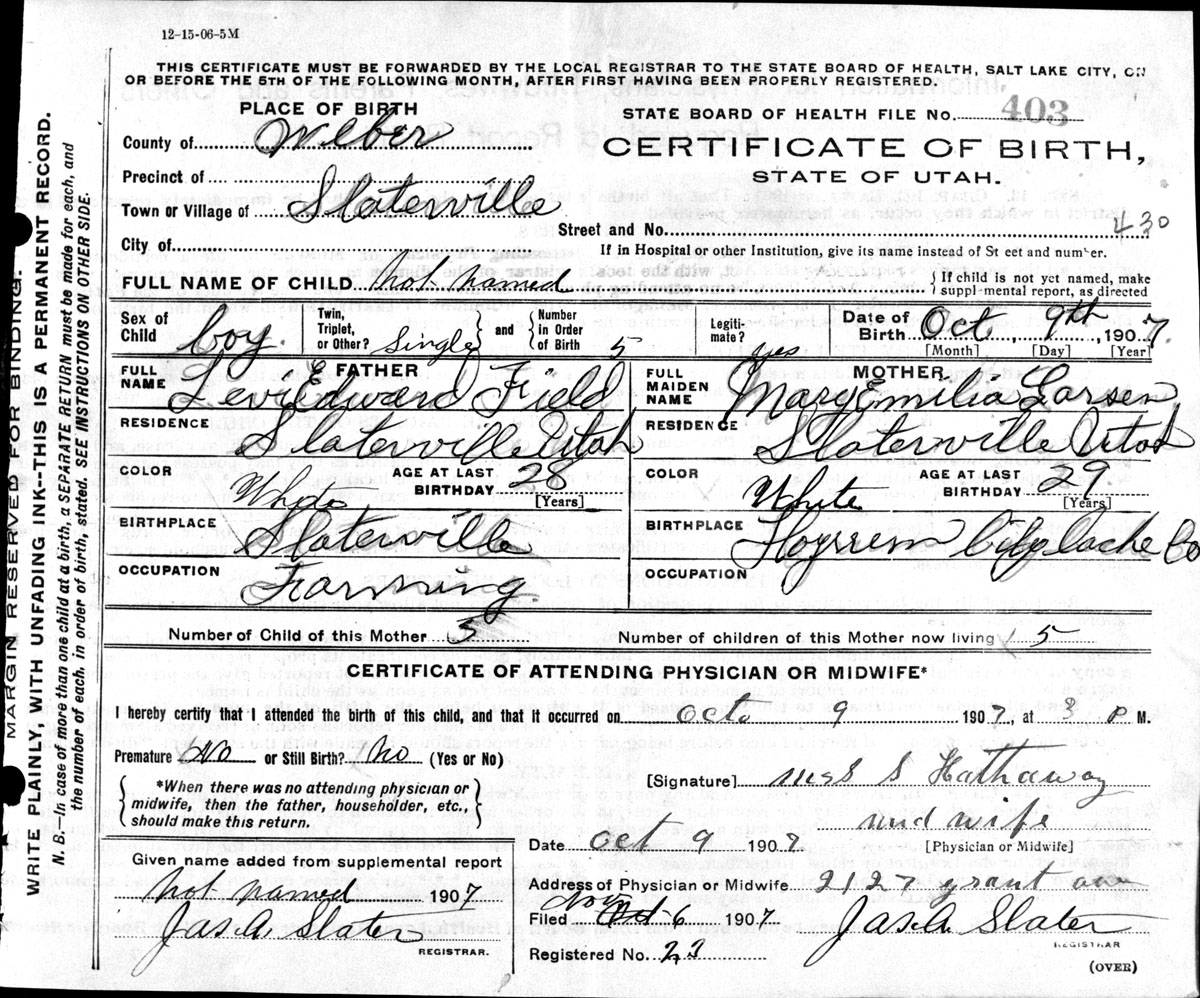 12-15-06-5M
THIS CERTIFICATE MUST BE FORWARDED BY THE LOCAL REGISTRAR TO THE STATE BOARD OF HEALTH, SALT LAKE CITY, ON
OR BEFORE THE 5TH OF THE FOLLOWING MONTH, AFTER FIRST HAVING BEEN PROPERLY REGISTERED.
PLACE OF BIRTH
County of Weber
Precinct of
Town or Village of Slaterville
City of
STATE BOARD OF HEALTH FILE No. 403
CERTIFICATE OF BIRTH,
STATE OF UTAH.
Street and No. 430
If in Hospital or other Institution, give its name instead of St eet and number.
FULL NAME OF CHILD not named
If child is not yet named, make
suppl mental report, as directed
Sex of Child boy.
Twin, Triplet, or Other? Single
and
Number in Order of Birth 5
Legiti-mate? yes
Date of Birth Oct, 9th, 1907
[Month] [Day] [Year]
FATHER
FULL NAME Levi Edward Field
RESIDENCE Slaterville Utah
COLOR White
AGE AT LAST BIRTHDAY 28
[Years]
BIRTHPLACE Slaterville
OCCUPATION Farming.
MOTHER
FULL MAIDEN NAME Mary Emilia Larsen
RESIDENCE Slaterville Utah
COLOR White
AGE AT LAST BIRTHDAY 29
[Years]
BIRTHPLACE City Cache Co
OCCUPATION
Number of Child of this Mother 5
Number of children of this Mother now living 5
CERTIFICATE OF ATTENDING PHYSICIAN OR MIDWIFE*
I hereby certify that I attended the birth of this child, and that it occurred on Octo 9 1907, at 3 P M.
Premature No or Still Birth? No (Yes or No)
*When there was no attending physician or
midwife, then the father, householder, etc.,
should make this return.
[Signature] S Hathaway
mid wife
[Physician or Midwife]
Date Oct 9 1907.
Address of Physician or Midwife 2127 grant ave
Given name added from supplemental report
not named 1907
Jas. A. Slater
REGISTRAR.
Nov
Filed Oct 6 1907
Jas. A. Slater
REGISTRAR
Registered No. 23
(OVER)
MARGIN RESERVED FOR BINDING.
WRITE PLAINLY, WITH UNFADING INK--THIS IS A PERMANENT RECORD.
N. B.—In case of more than one child at a birth, a SEPARATE RETURN must be made for each, and
the number of each, in order of birth, stated. SEE INSTRUCTIONS ON OTHER SIDE.